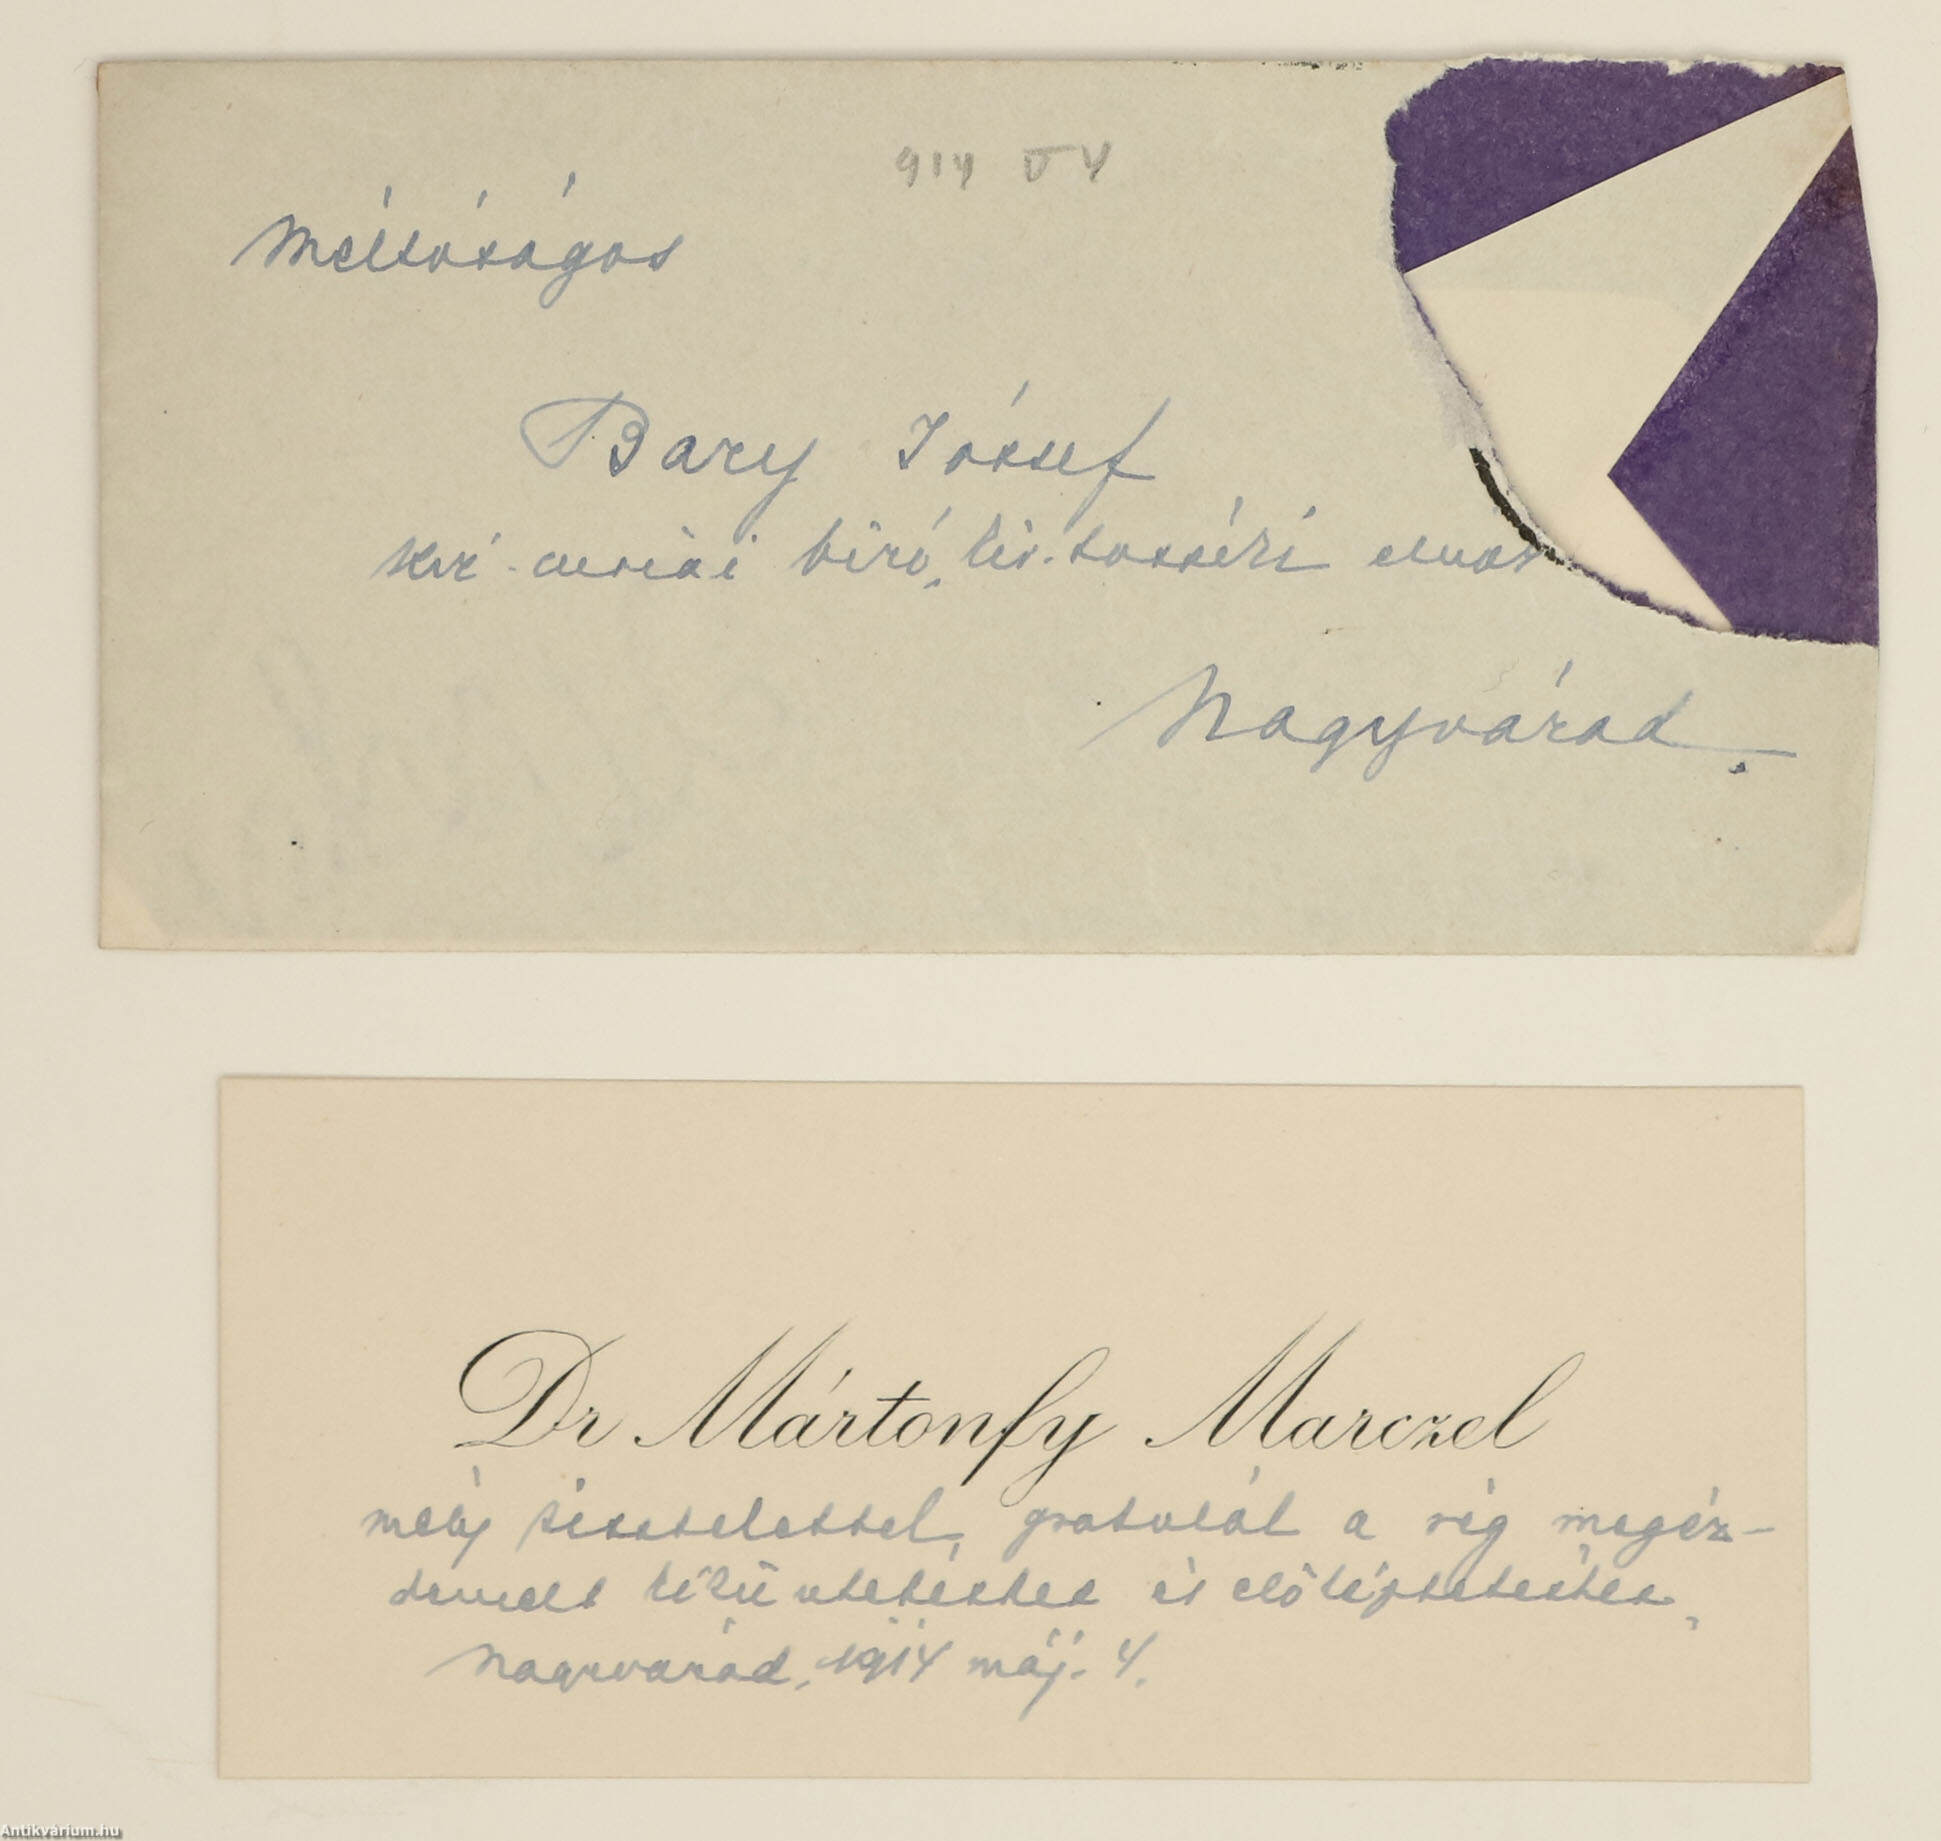 914 V 4
Méltóságos
Bary József
kir. curiai biró, kir. törvszéki elnök
Nagyvárad.
Dr Mártonfy Marczel
mély tisztelettel gratulál a rég megér-
demelt kitüntetéshez és előléptetéshez,
Nagyvárad, 1914 máj. 4.
Antikvárium.hu